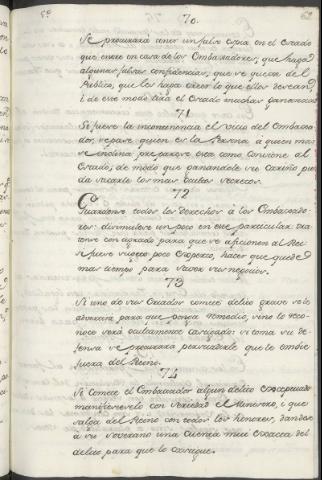 70.
Se procurará tener un falso espia en el Criado
que entre en casa de los Embaxadores, que haga
algunas falsas confidencias, que se quexe del
Publico, que les haga creer lo que ellos desean,
i de ese modo dirá el Criado muchas ganancias
71
Si fuere la incontinencia el vicio del Embaxa-
dor, repare quien es la Persona à quien mas
se inclina, preparese esta como conviene al
Estado, de modo que ganandole su cariño pue-
da sacarle los mas ocultos secretos.
72
Guardense todos los derechos à los Embaxado-
res: disimulese un poco en ese particular, tra
tense con agrado para que se aficionen al Rei
si fuere sugeto poco experto, hacer que quede
mas tiempo para sacar sus negocios.
73
Si uno de sus Criados comete delito grave se le
advertirá para que ponga remedio, sino lo reco-
noce será ocultamente castigado: si toma su de-
fensa se procurará persuadirle que lo embie
fuera del Reino.
74
Si comete el Embaxador algun delito exceptuado
manifieneselo con seriedad el Ministro, i que
salga del Reino con todos los honores, dandose
à su Soverano una cuenta mui exacta del
delito para que lo castigue.